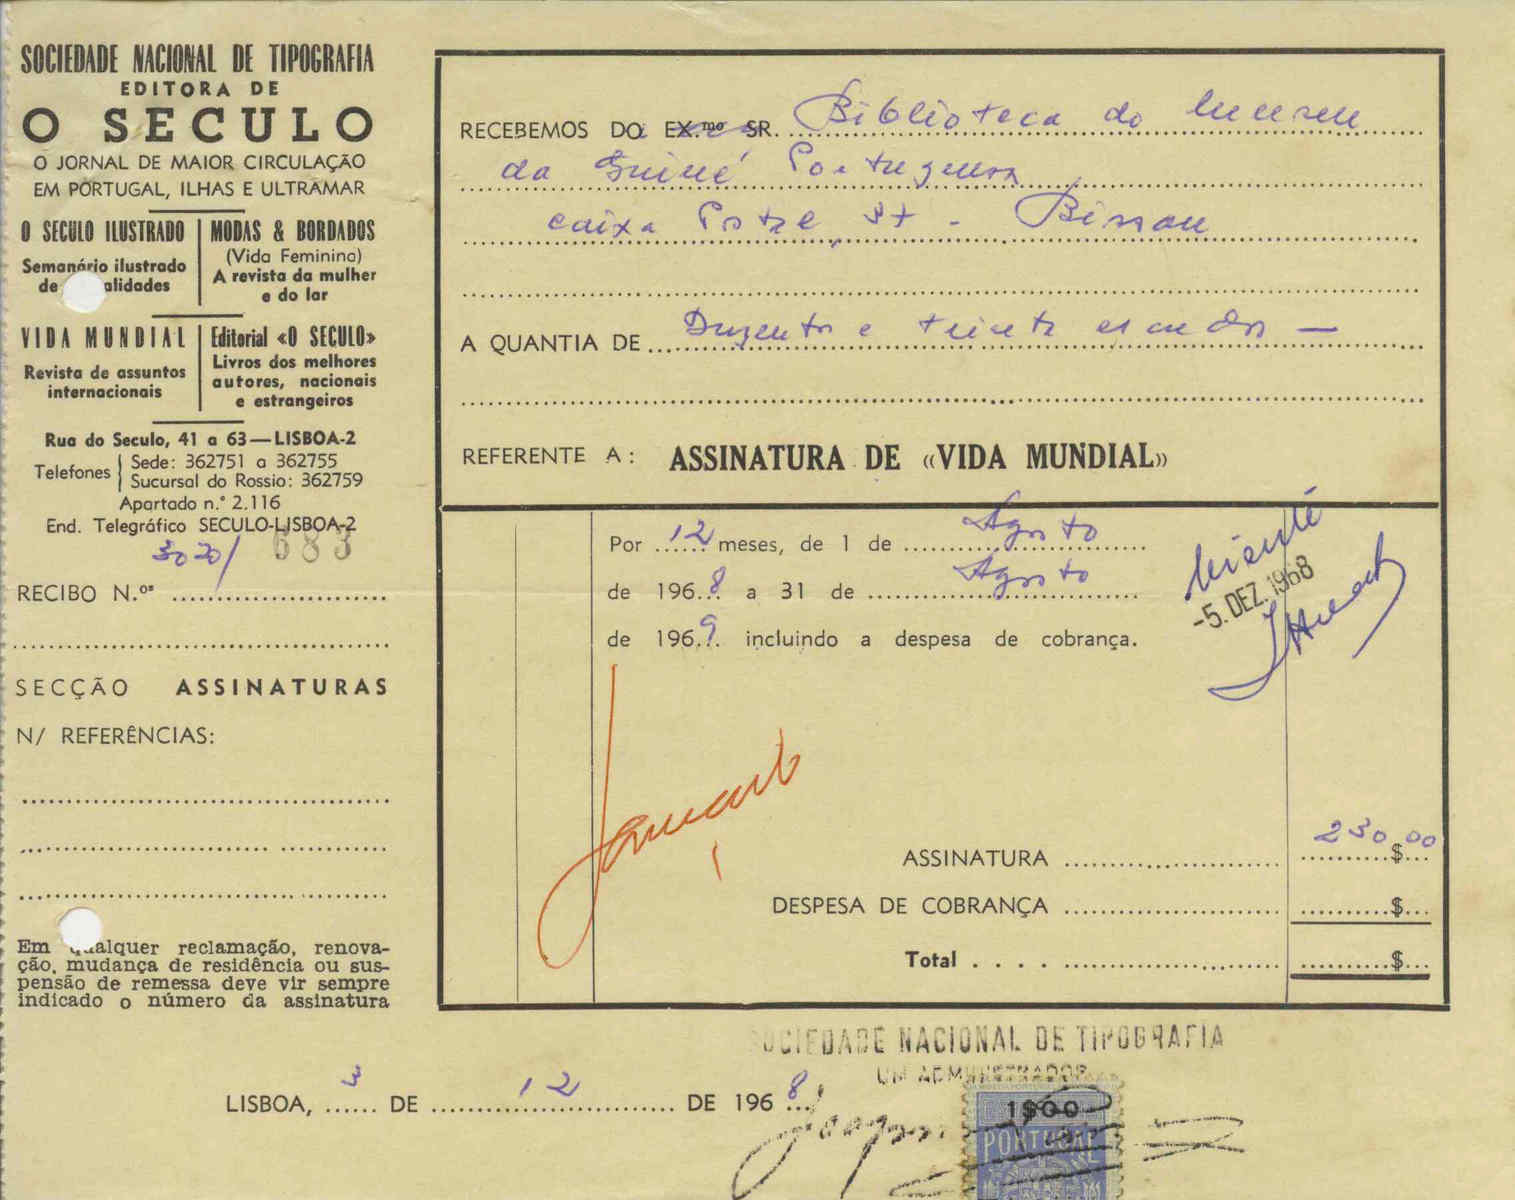 SOCIEDADE NACIONAL DE TIPOGRAFIA
EDITORA DE
O SECULO
O JORNAL DE MAIOR CIRCULAÇÃO
EM PORTUGAL, ILHAS E ULTRAMAR
O SECULO ILUSTRADO
Semanário ilustrado
de alidades
MODAS & BORDADOS
(Vida Feminina)
A revista da mulher
e do lar
VIDA MUNDIAL
Revista de assuntos
internacionais
Editorial «O SECULO»
Livros dos melhores
autores, nacionais
e estrangeiros
Rua do Seculo, 41 a 63—LISBOA-2
Telefones
Sede: 362751 a 362755
Sucursal do Rossio: 362759
Apartado n.º 2.116
End. Telegráfico SECULO-LISBOA-2
3020/ 683
RECIBO N.ºs
SECÇÃO ASSINATURAS
N/ REFERÊNCIAS:
Em qualquer reclamação, renova-
ção, mudança de residência ou sus-
pensão de remessa deve vir sempre
indicado o número da assinatura
RECEBEMOS DO EX.mo SR. Biblioteca do Museu
da Guiné Portuguesa
caixa Postal, 37 - Bissau
A QUANTIA DE Duzentos e trinta escudos —
REFERENTE A: ASSINATURA DE «VIDA MUNDIAL»
Por 12 meses, de 1 de Agosto
de 1968 a 31 de Agosto
de 1969 incluindo a despesa de cobrança.
-5. DEZ. 1968
ASSINATURA 230$00
DESPESA DE COBRANÇA $
Total $
SOCIEDADE NACIONAL DE TIPOGRAFIA
UM ADMINISTRADOR
LISBOA, 3 DE 12 DE 1968
1$00
PORTUGAL